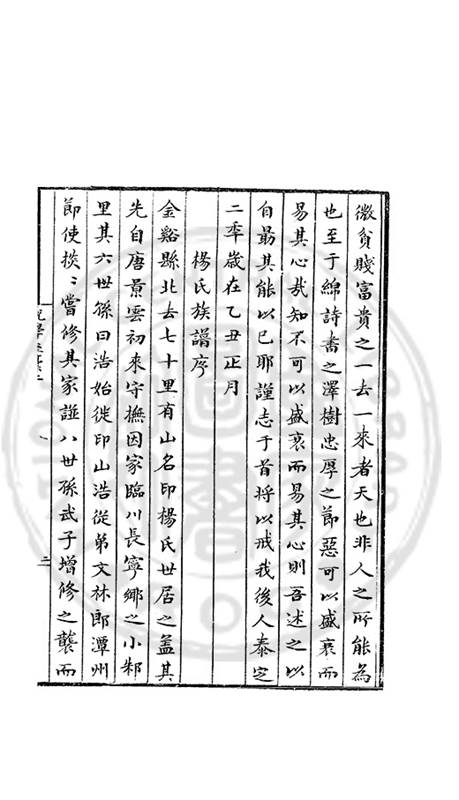 微貧賤富貴之一去一來者天也非人之所能為
也至于綿詩書之澤樹忠厚之節惡可以盛衰而
易其心哉知不可以盛衰而易其心則吾述之以
自勗其能以已耶謹志于首將以戒我後人泰定
二季歲在乙丑正月
楊氏族譜序
金谿縣北去七十里有山名印楊氏世居之蓋其
先自唐景雲初來守撫因家臨川長寧鄉之小邾
里其六世孫曰浩始徙印山浩從弟文林郎潭州
節使掞〻嘗修其家譜八世孫武子增修之襲而
二